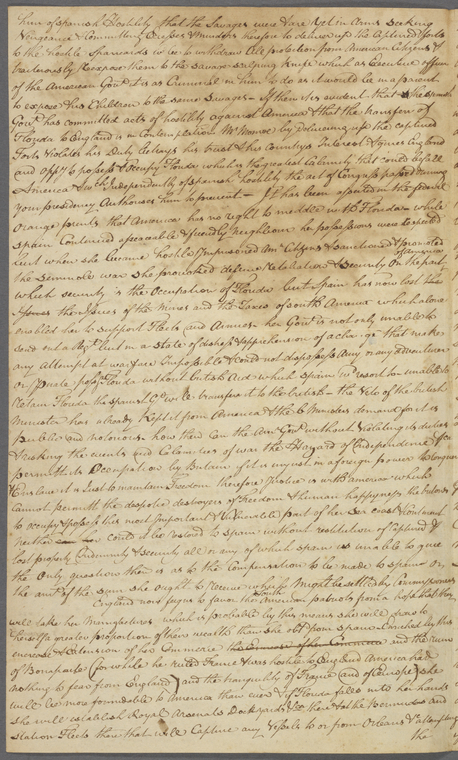 them of Spanish Hostility that the Savages were & are yet in Arms seeking
Vengeance & Committing Outrages & Murders therefore to deliver up the Captured Forts
to the hostile Spaniards is to withdraw All protection from American Citizens &
to expose them to the savage scalping Knife which as Executive officer
of the American Govt it is as Criminal in him to do as it would be in a parent
to expose his Children to the same Savages - If then it is evident that the Spanish
Govt has committed acts of hostility against America & that the transfer of
Florida to England is in Contemplation Mr Monroe by delivering up the captured
Forts Violates his Duty betrays his trust & his Countrys Interest & gives England
and oppy to possess & Occupy Florida which is the greatest Calamity that could befall
America & wch Independently of Spanish hostility the act of Congress passed during
your presidency Authorises him to prevent - It has been asserted in the
prints that America has no right to meddle with Florida - while
Spain Continued a peaceable & friendly Neighbour her possessions were respected
but when she became hostile & Imprisoned Am Citizens & sanctioned & promoted
the Seminole war she provoked defence Retaliation & Security On the part
which security is the Occupation of Florida but Spain has now lost the
the Issues of the Mines and the Taxes of South America which alone
enabled her to support Fleets and Armies her Govt is not only unable to
send out a Regt but in a state of Apprehension of a change that makes
any attempt at warfare Impossible & could not dispossess Any or any adventurer
or Private possg Florida without British Aid which Spain to resort to - unable to
Retain Florida the Spanish Gt will transfer it to the British - the Veto of the British
Minister has already kept it from America & the B Ministers demand for it is
Public and notorious how then Can the Am Govt without Violating its duties
& risking the events and Calamities of war the Hazard of Independence &ca
permit its Occupation by Britain if it is unjust in a foreign power to Conquer
& Enslave it is Just to maintain Freedom therefore Justice is with America which
Cannot permit the despotic destroyers of Freedom & human happyness the Britons
to occupy & possess this most Important & Vulnerable part of her Sea coast & Continent
neither could it be restored to Spain without restitution of Captured &
lost property Indemnity & Security all or any of which Spain is unable to give
the Only question then is as to the Compensation to be made to Spain or,
the amt of the sum she ought to receive which Might be settled by Commissioners
England now feigns to favor the South American patriots from a hope that they
will take her Manufactures which is probable by this means she will draw to
herself a greater proportion of their wealth than she did from Spain Enriched by this
encrease & Extension of her Commerce and the ruin
of Bonaparte (for while he ruled France & was hostile to England America had
nothing to fear from England) and the tranquility of France (and of Europe) she
will be more formidable to America than ever & if Florida falls into her hands
she will establish Royal Arsenals Dockyards &c there & at the Bermudas and
station Fleets there that will Capture any Vessels to or from Orleans & attempting
the